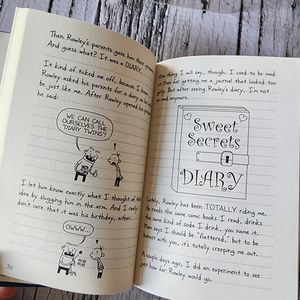 Then Rowley's parents gave him their present.
And guess what? It was a DIARY.
It kind of ticked me off, because I know
Rowley asked his parents for a diary so he could
be just like me. After Rowley opened his present
he said:
WE CAN CALL
OURSELVES THE
DIARY TWINS!
I let him know exactly what I thought of that
idea by slugging him in the arm. And I really
don't care that it was his birthday, either.
OWWW...
70
One thing I will say, though. I used to be mad
at Mom for getting me a journal that looked too
But after seeing Rowley's diary, I'm not
so mad anymore.
Sweet
Secrets
DIARY
Lately, Rowley has been TOTALLY riding me.
He reads the same comic books I read, drinks
the same kind of soda I drink, you name it.
Mom says I should be "flattered," but to be
honest with you, it's totally creeping me out.
A couple days ago, I did an experiment to see
just how far Rowley would go.